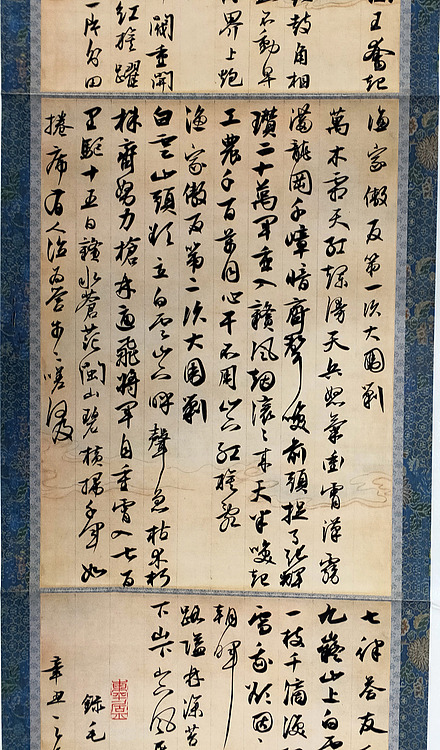 奮起
鼓角相
不動早
界上炮
閥重開
紅旌躍
一片分田
漁家傲反第一次大圍剿
萬木霜天紅爛漫天兵怒氣衝霄漢霧
滿龍岡千嶂暗齊聲喚前頭捉了張輝
瓚二十萬軍重入贛風烟滾々來天半喚起
工農千百萬同心干不周山下紅旌亂
漁家傲反第二次大圍剿
白云山頭欲立白云山下呼聲急枯木朽
株齊努力槍林逼飛將軍自重霄入七百
里驅十五日贛水蒼茫閩山碧橫掃千軍如
捲席有人泣爲營步々嗟何及
七律答友
九嶷山上白云
一枝千滴淚
雪我欲因
朝暉
路隘林深苔
下山下風展
錄毛
辛丑